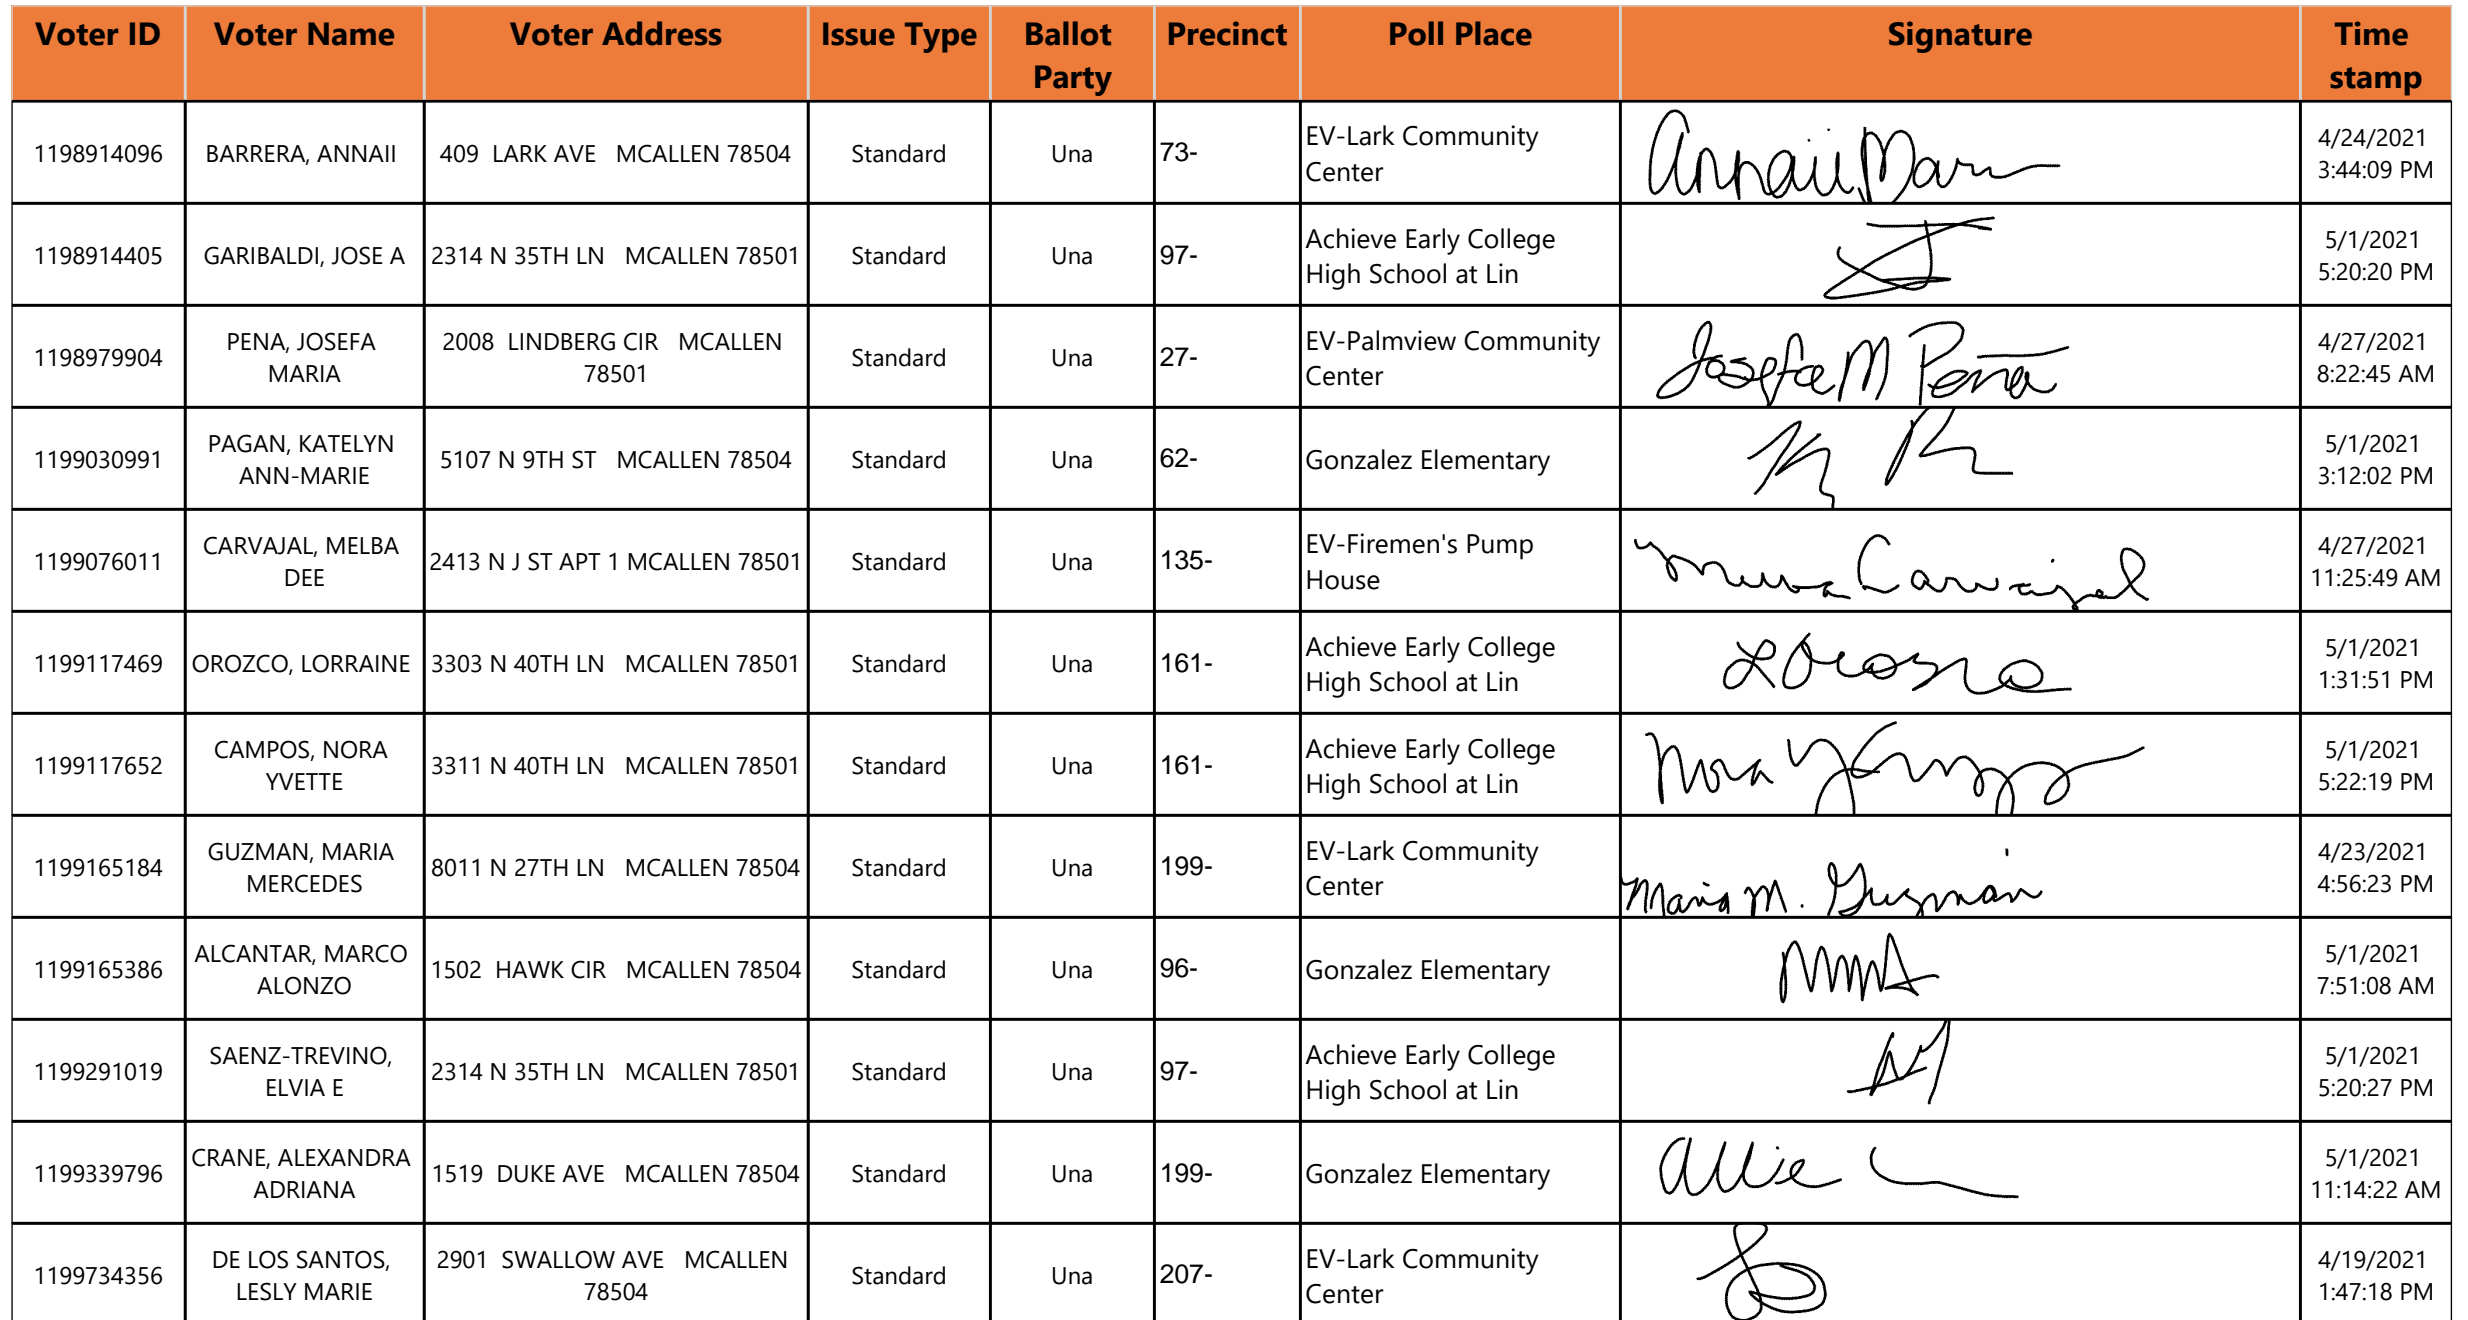 Voter ID Voter Name Voter Address Issue Type Ballot Party Precinct Poll Place Signature Time stamp
1198914096 BARRERA, ANNAII 409 LARK AVE MCALLEN 78504 Standard Una 73- EV-Lark Community Center Annaii 4/24/2021 3:44:09 PM
1198914405 GARIBALDI, JOSE A 2314 N 35TH LN MCALLEN 78501 Standard Una 97- Achieve Early College High School at Lin 5/1/2021 5:20:20 PM
1198979904 PENA, JOSEFA MARIA 2008 LINDBERG CIR MCALLEN 78501 Standard Una 27- EV-Palmview Community Center Josefa M Peña 4/27/2021 8:22:45 AM
1199030991 PAGAN, KATELYN ANN-MARIE 5107 N 9TH ST MCALLEN 78504 Standard Una 62- Gonzalez Elementary 5/1/2021 3:12:02 PM
1199076011 CARVAJAL, MELBA DEE 2413 N J ST APT 1 MCALLEN 78501 Standard Una 135- EV-Firemen's Pump House Carvajal 4/27/2021 11:25:49 AM
1199117469 OROZCO, LORRAINE 3303 N 40TH LN MCALLEN 78501 Standard Una 161- Achieve Early College High School at Lin 5/1/2021 1:31:51 PM
1199117652 CAMPOS, NORA YVETTE 3311 N 40TH LN MCALLEN 78501 Standard Una 161- Achieve Early College High School at Lin Nora Y 5/1/2021 5:22:19 PM
1199165184 GUZMAN, MARIA MERCEDES 8011 N 27TH LN MCALLEN 78504 Standard Una 199- EV-Lark Community Center Maria M. Guzman 4/23/2021 4:56:23 PM
1199165386 ALCANTAR, MARCO ALONZO 1502 HAWK CIR MCALLEN 78504 Standard Una 96- Gonzalez Elementary 5/1/2021 7:51:08 AM
1199291019 SAENZ-TREVINO, ELVIA E 2314 N 35TH LN MCALLEN 78501 Standard Una 97- Achieve Early College High School at Lin 5/1/2021 5:20:27 PM
1199339796 CRANE, ALEXANDRA ADRIANA 1519 DUKE AVE MCALLEN 78504 Standard Una 199- Gonzalez Elementary Allie C 5/1/2021 11:14:22 AM
1199734356 DE LOS SANTOS, LESLY MARIE 2901 SWALLOW AVE MCALLEN 78504 Standard Una 207- EV-Lark Community Center 4/19/2021 1:47:18 PM